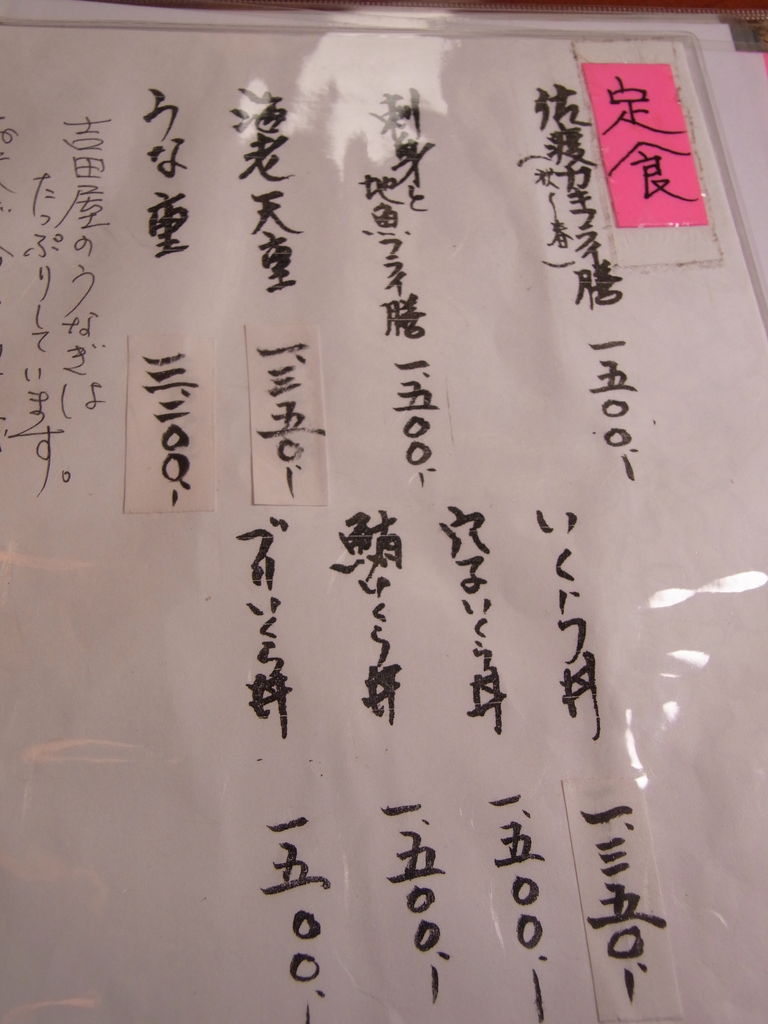 定食
佐渡カキフライ膳 一、五〇〇、-
(秋〜春)
刺身と地魚フライ膳 一、五〇〇、-
海老天重 一、三五〇、-
うな重 三、二〇〇、-
吉田屋のうなぎは
たっぷりしています。
いくら丼 一、三五〇、-
穴子いくら丼 一、五〇〇、-
鮪いくら丼 一、五〇〇、-
ブリいくら丼 一、五〇〇、-